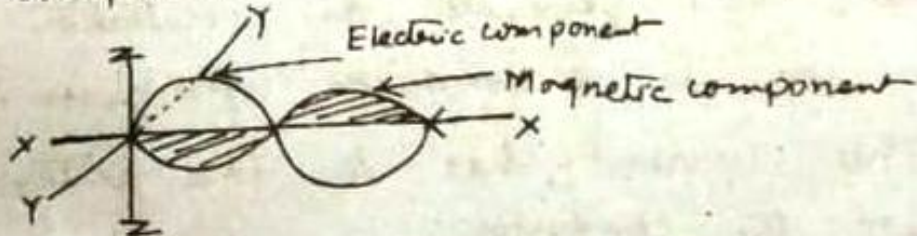 Y
Electric component
Z
Magnetic component
X
X
Y
Z